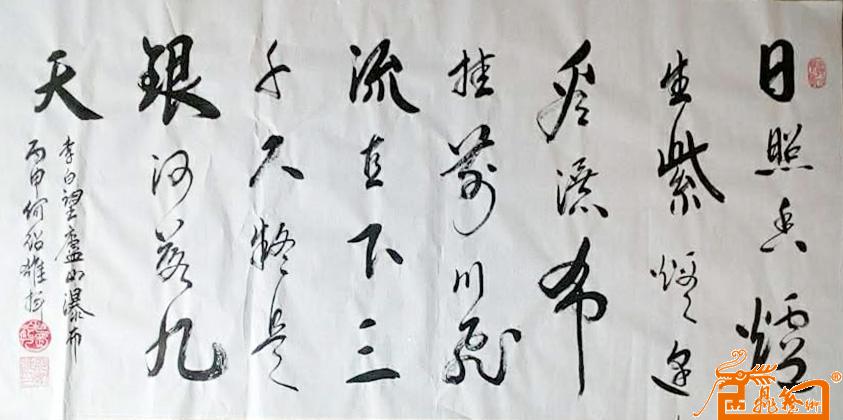 日照香爐
生紫煙遥
看瀑布
挂前川飛
流直下三
千尺疑是
銀河落九
天
李白望廬山瀑布
丙申何紹雄书